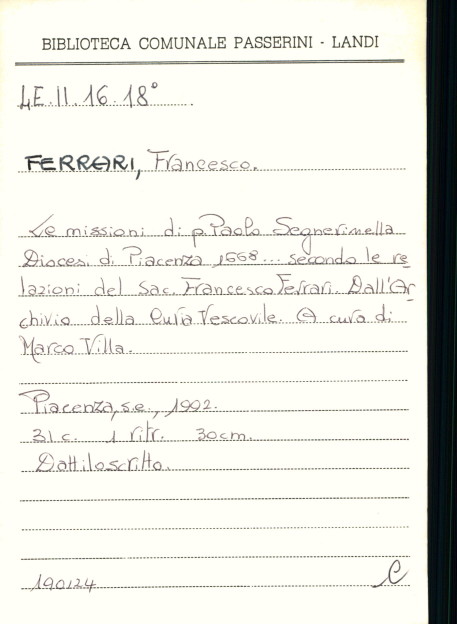 BIBLIOTECA COMUNALE PASSERINI - LANDI
LE.II.16.18°
FERRARI, Francesco.
Le missioni di p. Paolo Segneri nella
Diocesi di Piacenza 1668... secondo le re
lazioni del Sac. Francesco Ferrari. Dall'Ar
chivio della Curia Vescovile. A cura di
Marco Villa.
Piacenza, s.e., 1992.
31 c. 1 ritr. 30cm.
Dattiloscritto.
190124
C